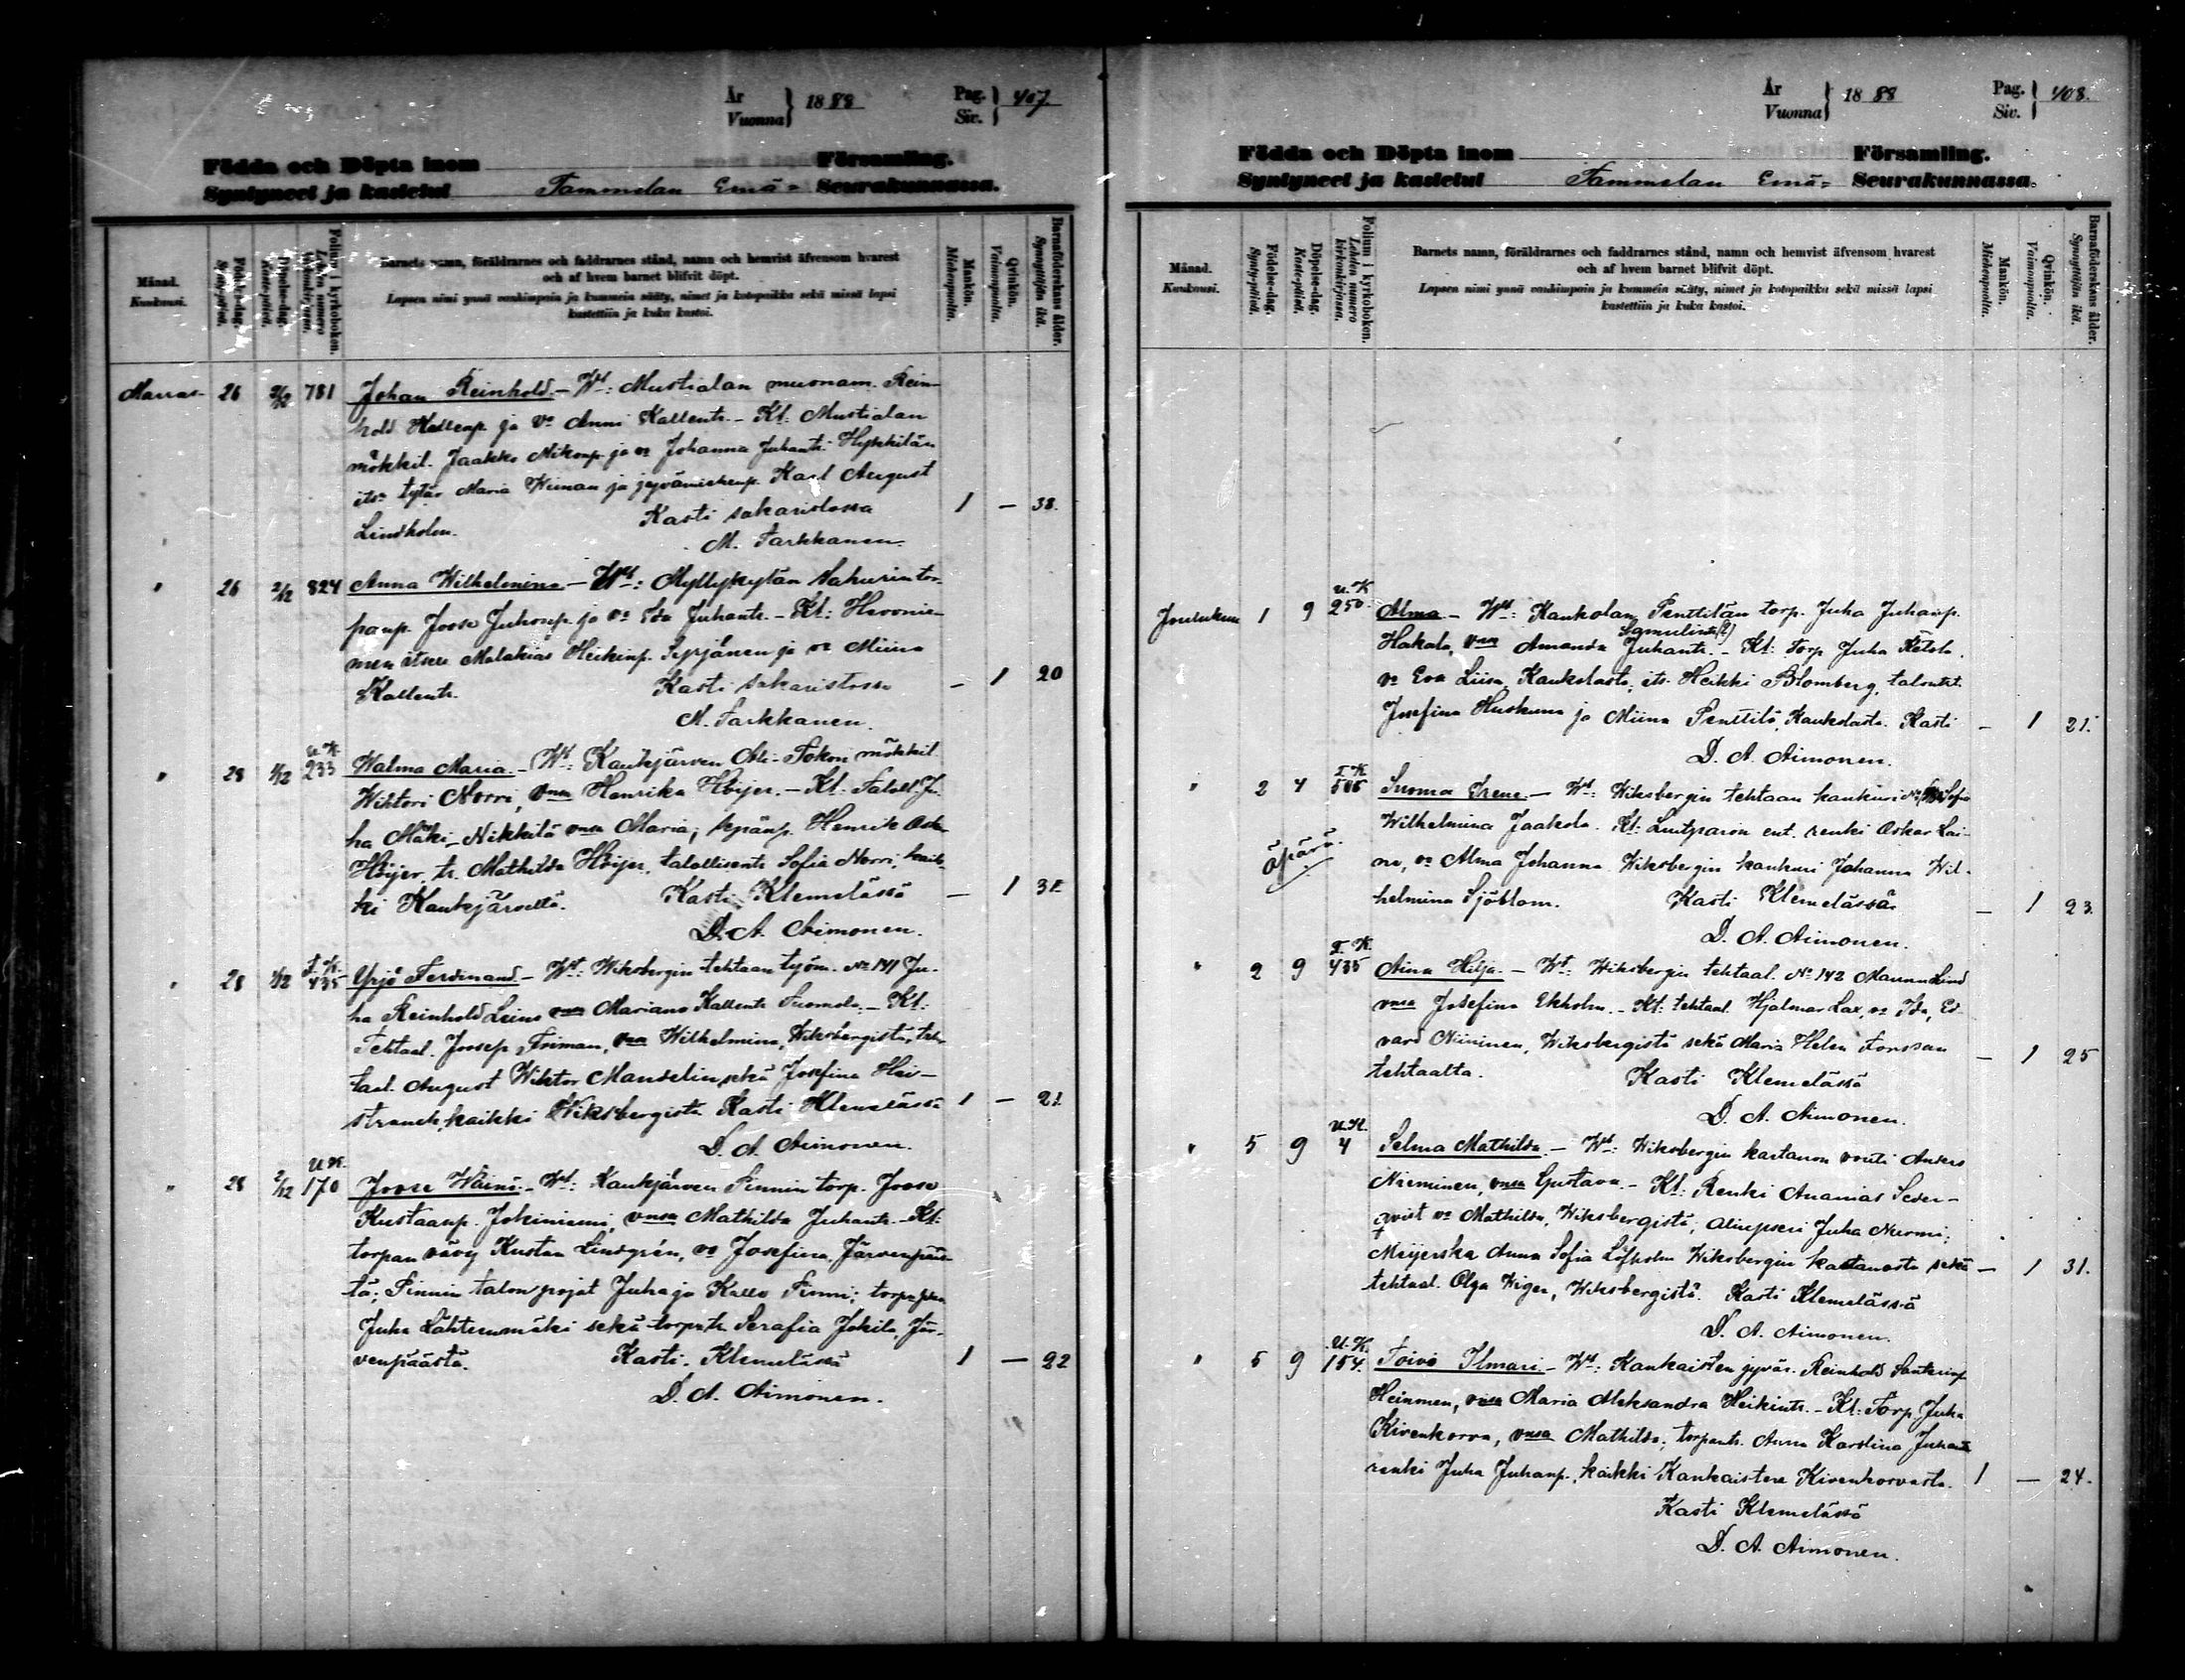 År
Vuonna } 1888 Pag.
Siv. } 407.
Födda och Döpta inom Församling.
Syntyneet ja kastetut Tammelan Emä- Seurakunnassa.
Månad.
Kuukausi.
Födelse-dag.
Syntypäivä.
Döpelse-dag.
Kaste-päivä.
Folium i kyrkoboken.
Lehden numero
kirkonkirjassa.
Barnets namn, föräldrarnes och faddrarnes stånd, namn och hemvist äfvensom hvarest
och af hvem barnet blifvit döpt.
Lapsen nimi ynnä vanhimpain ja kummein sääty, nimet ja kotopaikka sekä missä lapsi
kastettiin ja kuka kastoi.
Mankön.
Miehenpuolta.
Qvinkön.
Vaimonpuolta.
Barnaföderskans ålder.
Synnyttäjän ikä.
Marras- 26 2/12 781 Johan Reinhold. - Wt: Mustialan muonam. Rein-
hold Kallenp. ja vo Anni Kallentr. - Kt: Mustialan
mökkil. Jaakko Nikonp. ja vo Johanna Juhantr. Hykkilän
its. tytär Maria Winan ja jyvämiehenp. Karl August
Lindholm. Kasti sakaristossa 1 — 38.
M. Tarkkanen.
" 26 2/12 824 Anna Wilhelmina - Wt: Myllykylän Sahurin tor-
panp. Joose Juhonp. ja vo Ida Juhantr. - Kt:
men itsell. Malakias Heikinp. Syrjänen ja vo Miina
Kallentr. Kasti sakaristossa — 1 20
M. Tarkkanen.
U.K.
" 28 1/12 233 Walma Maria. - Wt: Kaukjärven Ali-Tokon mökkil.
Wihtori Norri, vmsa Henrika Höijer. - Kt. Taloll. Ju-
ha Mäki-Nikkilä vmsa Maria; sepänp. Henrik Osk.
Höijer, tr. Mathilda Höijer, talollisentr. Sofia Norri, kaik-
ki Kaukjärveltä. Kasti Klemelässä — 1 31.
D. A. Aimonen.
T.K.
" 28 1/12 435 Yrjö Ferdinand - Wt: Wiksbergin tehtaan työm. No 141 Ju-
ha Reinhold Leino vmsa Mariana Kallentr. Suomela. - Kt:
Tehtaal. Joosep Friman, vmsa Wilhelmina, Wiksbergistä, teh-
taal. August Wiktor Mandelin sekä Josefina Hei-
kaikki Wiksbergistä Kasti Klemelässä 1 — 21.
D. A. Aimonen.
U.K.
" 28 2/12 170 Joose Wäinö. - Wt: Kaukjärven Pinnin torp. Joose
Kustaanp. Jokiniemi, vmsa Mathilda Juhantr. - Kt:
torpan vävy Kustaa Lindgrén, vo Josefina, Järvenpääs-
tä; Pinnin talon pojat Juha ja Kalle Pinni; torp. poika
Juha Lähteenmäki sekä torp. tr. Serafia Jokila, Jär-
venpäästä. Kasti Klemelässä 1 — 22
D. A. Aimonen.
År
Vuonna } 1888 Pag.
Siv. } 408.
Födda och Döpta inom Församling.
Syntyneet ja kastetut Tammelan Emä- Seurakunnassa.
Månad.
Kuukausi.
Födelse-dag.
Syntypäivä.
Döpelse-dag.
Kaste-päivä.
Folium i kyrkoboken.
Lehden numero
kirkonkirjassa.
Barnets namn, föräldrarnes och faddrarnes stånd, namn och hemvist äfvensom hvarest
och af hvem barnet blifvit döpt.
Lapsen nimi ynnä vanhimpain ja kummein sääty, nimet ja kotopaikka sekä missä lapsi
kastettiin ja kuka kastoi.
Mankön.
Miehenpuolta.
Qvinkön.
Vaimonpuolta.
Barnaföderskans ålder.
Synnyttäjän ikä.
U.K.
Joulukuu 1 9 250. Alma - Wt: Kaukolan Penttilän torp. Juha Juhanp.
Samulintr (?)
Hakala, vmsa Amanda Juhantr. - Kt: Torp. Juha Ketola,
vo Eva Liisa, Kaukolasta; its. Heikki Blomberg, talontr.
Josefina Huskuna ja Miina Penttilä, Kaukolasta. Kasti — 1 21.
D. A. Aimonen.
T.K.
" 2 4 586 Suoma Irene. - Wt: Wiksbergin tehtaan kankuri Sofia
Äpärä.
Wilhelmina Jaakola. Kt: ent. renki Oskar Lai-
ne, vo Alma Johanna Wiksbergin kankuri Johanna Wil-
helmina Sjöblom. Kasti Klemelässä — 1 23.
D. A. Aimonen.
T.K.
" 2 9 435 Aina Hilja. - Wt: Wiksbergin tehtaal. No 142 Lind
vmsa Josefina Ekholm. - Kt: tehtaal. Hjalmar Lax, vo Ida, Ed-
vard Niininen, Wiksbergistä sekä Maria Helen Forssan
tehtaalta. Kasti Klemelässä — 1 25
D. A. Aimonen.
U.K.
" 5 9 4 Selma Mathilda. - Wt: Wiksbergin kartanon vouti Anders
Nieminen, vmsa Gustava. - Kt: Renki Ananias Seder-
qvist vo Mathilda, Wiksbergistä; Juha Nurmi;
Meijerska Anna Sofia Löfholm Wiksbergin kartanosta sekä — 1 31.
tehtaal. Olga Wiger, Wiksbergistä. Kasti Klemelässä
D. A. Aimonen.
U.K.
" 5 9 154. Toivo Ilmari - Wt: Kankaisten jyväs. Reinhold Santerinp.
Heinmen, vmsa Maria Aleksandra Heikintr. - Kt: Torp. Juha
Kivenkorva, vmsa Mathilda; torpantr. Anna Karolina Juhantr.
renki Juha Juhanp., kaikki Kankaisten Kivenkorvasta. 1 — 24.
Kasti Klemelässä
D. A. Aimonen.